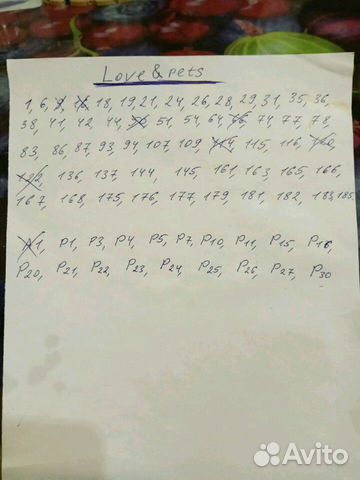 Love & pets
1, 6, 9, 16, 18, 19, 21, 24, 26, 28, 29, 31, 35, 36,
38, 41, 42, 44, 50, 51, 54, 64, 66, 74, 77, 78,
83, 86, 87, 93, 94, 107, 109, 114, 115, 116, 120,
122, 136, 137, 144, 145, 161, 163, 165, 166,
167, 168, 175, 176, 177, 179, 181, 182, 183, 185.
A1, P1, P3, P4, P5, P7, P10, P11, P15, P18,
P20, P21, P22, P23, P24, P25, P26, P27, P30
Avito